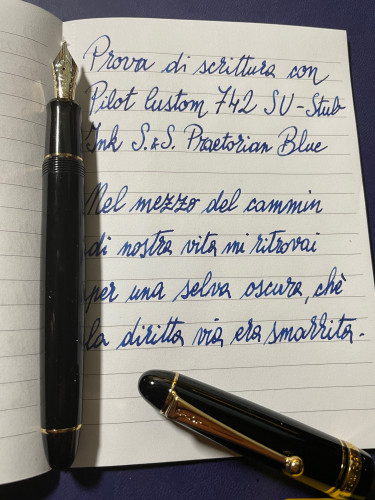 Prova di scrittura con
Pilot Custom 742 SU-Stub
Ink S.&S. Praetorian Blue
Nel mezzo del cammin
di nostra vita mi ritrovai
per una selva oscura, chè
la diritta via era smarrita.